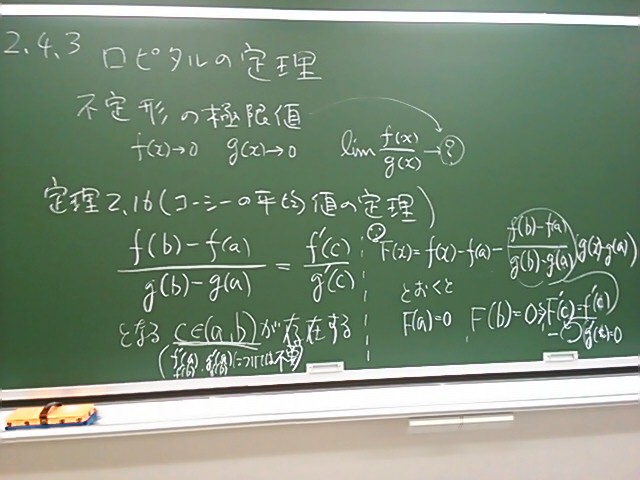 2.4.3 ロピタルの定理
不定形の極限値
f(x)→0 g(x)→0 lim f(x)/g(x) → ?
定理2.16(コーシーの平均値の定理)
(f(b)-f(a))/(g(b)-g(a)) = f'(c)/g'(c)
となる c∈(a,b)が存在する
∵ F(x)=f(x)-f(a)-(f(b)-f(a))/(g(b)-g(a))(g(x)-g(a))
とおくと
F(a)=0 F(b)=0 F'(c)=f'(c)